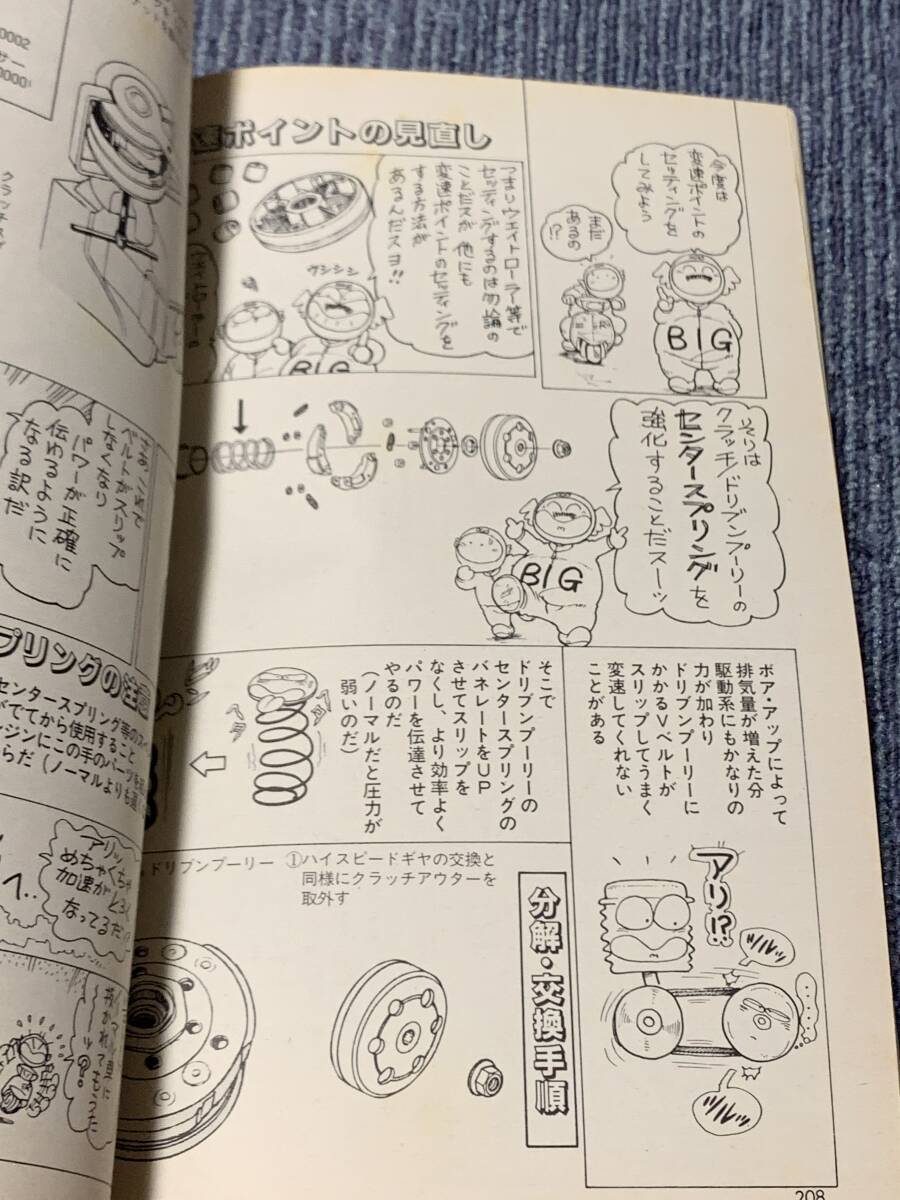 速ポイントの見直し
今度は
変速ポイントの
セッティングを
してみよう
まだ
あるの
!?
BIG
つまりウェイトローラー等で
セッティングするのは勿論の
ことだスが他にも
変速ポイントのセッティングを
する方法が
あるんだスヨ!!
ウシシシ
BIG
そりは
クラッチ/ドリブンプーリーの
センタースプリングを
強化することだスーッ
BIG
ボア・アップによって
排気量が増えた分
駆動系にもかなりの
力が加わり
ドリブンプーリーに
かかるVベルトが
スリップしてうまく
変速してくれない
ことがある
アリ!?
ツルル
ツルル
そこで
ドリブンプーリーの
センタースプリングの
バネレートをUP
させてスリップを
なくし、より効率よく
パワーを伝達させて
やるのだ
(ノーマルだと圧力が
弱いのだ)
分解・交換手順
①ハイスピードギヤの交換と
同様にクラッチアウターを
取外す
ドリブンプーリー
208
0002
サー
0000
ベルトがスリップ
しなくなり
パワーが正確に
伝わるように
なる訳だ
プリングの注意
センタースプリング等の
がでてから使用すること
ンジンにこの手のパーツを
らだ(ノーマルよりも
アリッ
めちゃくちゃ
加速が
なってるだ
抜かれてもうた